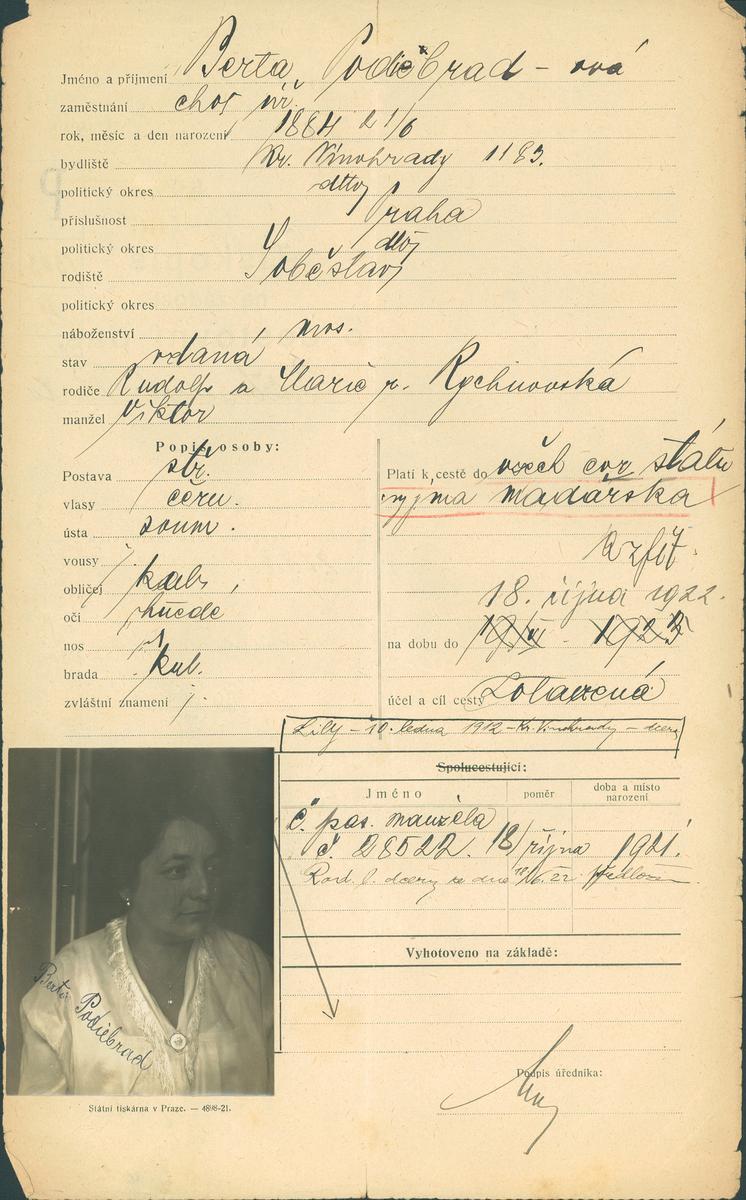 Jméno a příjmení Berta Poděbrad-ová
zaměstnání choť úř.
rok, měsíc a den narození 1884 21/6
bydliště Kr. Vinohrady 1183.
politický okres dtto
příslušnost Praha
politický okres dtto
rodiště Soběslav
politický okres
náboženství mos.
stav vdaná
rodiče Rudolf a Marie r. Rychnovská
manžel Viktor
Popis osoby:
Postava stř.
vlasy černé
ústa soum.
vousy /
obličej kul.
oči hnědé
nos
brada kul.
zvláštní znamení /
Platí k cestě do všech evr států
vyjma maďarska
18. října 1922.
na dobu do 1923
účel a cíl cesty
Lilly - 10. ledna 1912 - Kr. Vinohrady - dcera
Spolucestující:
Jméno poměr doba a místo narození
č. pas. manžela
č. 28522. 18/října 1921.
Rod. l. dcery ze dne
Vyhotoveno na základě:
Podpis úředníka:
Berta Podiebrad
Státní tiskárna v Praze. — 4898-21.